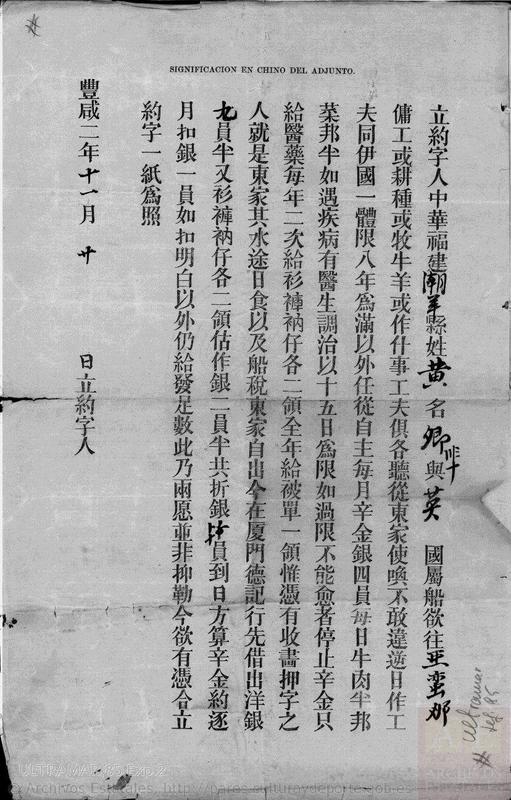 SIGNIFICACION EN CHINO DEL ADJUNTO.
立約字人中華福建潮羊縣姓黃名卿與英國屬船欲往亞蛮那
傭工或耕種或牧牛羊或作什事工夫俱各聽從東家使喚不敢違逆日作工
夫同伊國一體限八年為滿以外任從自主每月辛金銀四員每日牛肉半邦
菜邦半如遇疾病有醫生調治以十五日為限如過限不能愈者停止辛金只
給醫藥每年二次給衫褲衲仔各二領全年給被單一領惟憑有收畵押字之
人就是東家其水途日食以及船稅東家自出今在厦門德記行先借出洋銀
九員半又衫褲衲仔各二領估作銀二員半共折銀員到日方算辛金約逐
月扣銀一員如扣明白以外仍給發足數此乃兩愿並非抑勒今欲有憑合立
約字一紙為照
豐咸二年十一月廿日立約字人
ultramar
ULTRAMAR,85,Exp.2
© Archivos Estatales, http://pares.culturaydeporte.gob.es